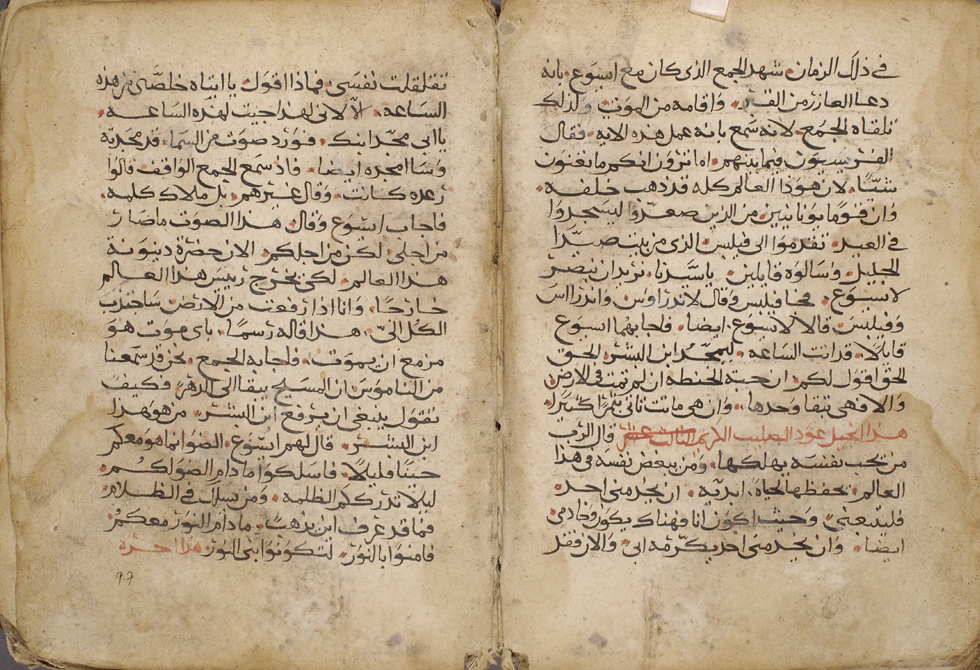 في ذلك الزمان شهد الجمع الذي كان مع ايسوع بانه
دعا العازر من القبر واقامه من الموت ولذلك
تلقاه الجمع لانه سمع بانه عمل هذه الايه فقال
الفريسيون فيما بينهم اما ترون انكم ما تغنون
شيّا لان هوذا العالم كله قد ذهب خلفه
وان قوما يونانيين من الذين صعدوا ليسجدوا
في العيد تقدموا الى فيلبس الذي من بيت صيدا
الجليل وسالوه قايلين ياسيدنا نريد ان نبصر
لايسوع فجا فيلبس وقال لاندراوس واندراس
وفيلبس قالا لايسوع ايضا فاجابهما ايسوع
قايلا قد اتت الساعه ليمجد ابن البشر الحق
الحق اقول لكم ان حبة الحنطه ان لم تمت في الارض
والا فهي تبقا وحدها وان هي ماتت تاتي بثمرا كثيرا
هذا انجيل عود الصليب الكريم قال الرب
من يحب نفسه يهلكها ومن يبغض نفسه في هذا
العالم يحفظها لحياة ابديه ان يخدمني احد
فليتبعني وحيث اكون انا فهناك يكون خادمي
ايضا وان يخدمني احد يكرمه ابي والان فقد
تقلقلت نفسي فماذا اقول يا ابتاه خلصني من هذه
الساعه الا لاني لهذا جيت لهذه الساعه
ياابي مجد ابنك فورد صوت من السما قد مجدته
وسامجده ايضا فاذ سمع الجمع الواقف قالوا
رعده كانت وقال غيرهم بل ملاك كلمه
فاجاب ايسوع وقال هذا الصوت ما صار
من اجلي لكن من اجلكم الان حضرة دينونة
هذا العالم لكي يخرج رييس هذا العالم
خارجا وانا اذا رفعت من الارض ساجتذب
الكل اليّ هذا قاله رسما باي موت هو
مزمع ان يموت فاجابه الجمع نحن قد سمعنا
من الناموس ان المسيح يبقا الى الدهر فكيف
تقول ينبغي ان يرفع ابن البشر من هو هذا
ابن البشر قال لهم ايسوع الضو انما هو معكم
حينا قليلا فاسلكوا مادام الضو لكم
ليلا تدرككم الظلمه ومن يسلك في الظلام
فما قد عرف اين يذهب مادام النور معكم
فامنوا بالنور لتكونوا بني النور هذا اخره
97